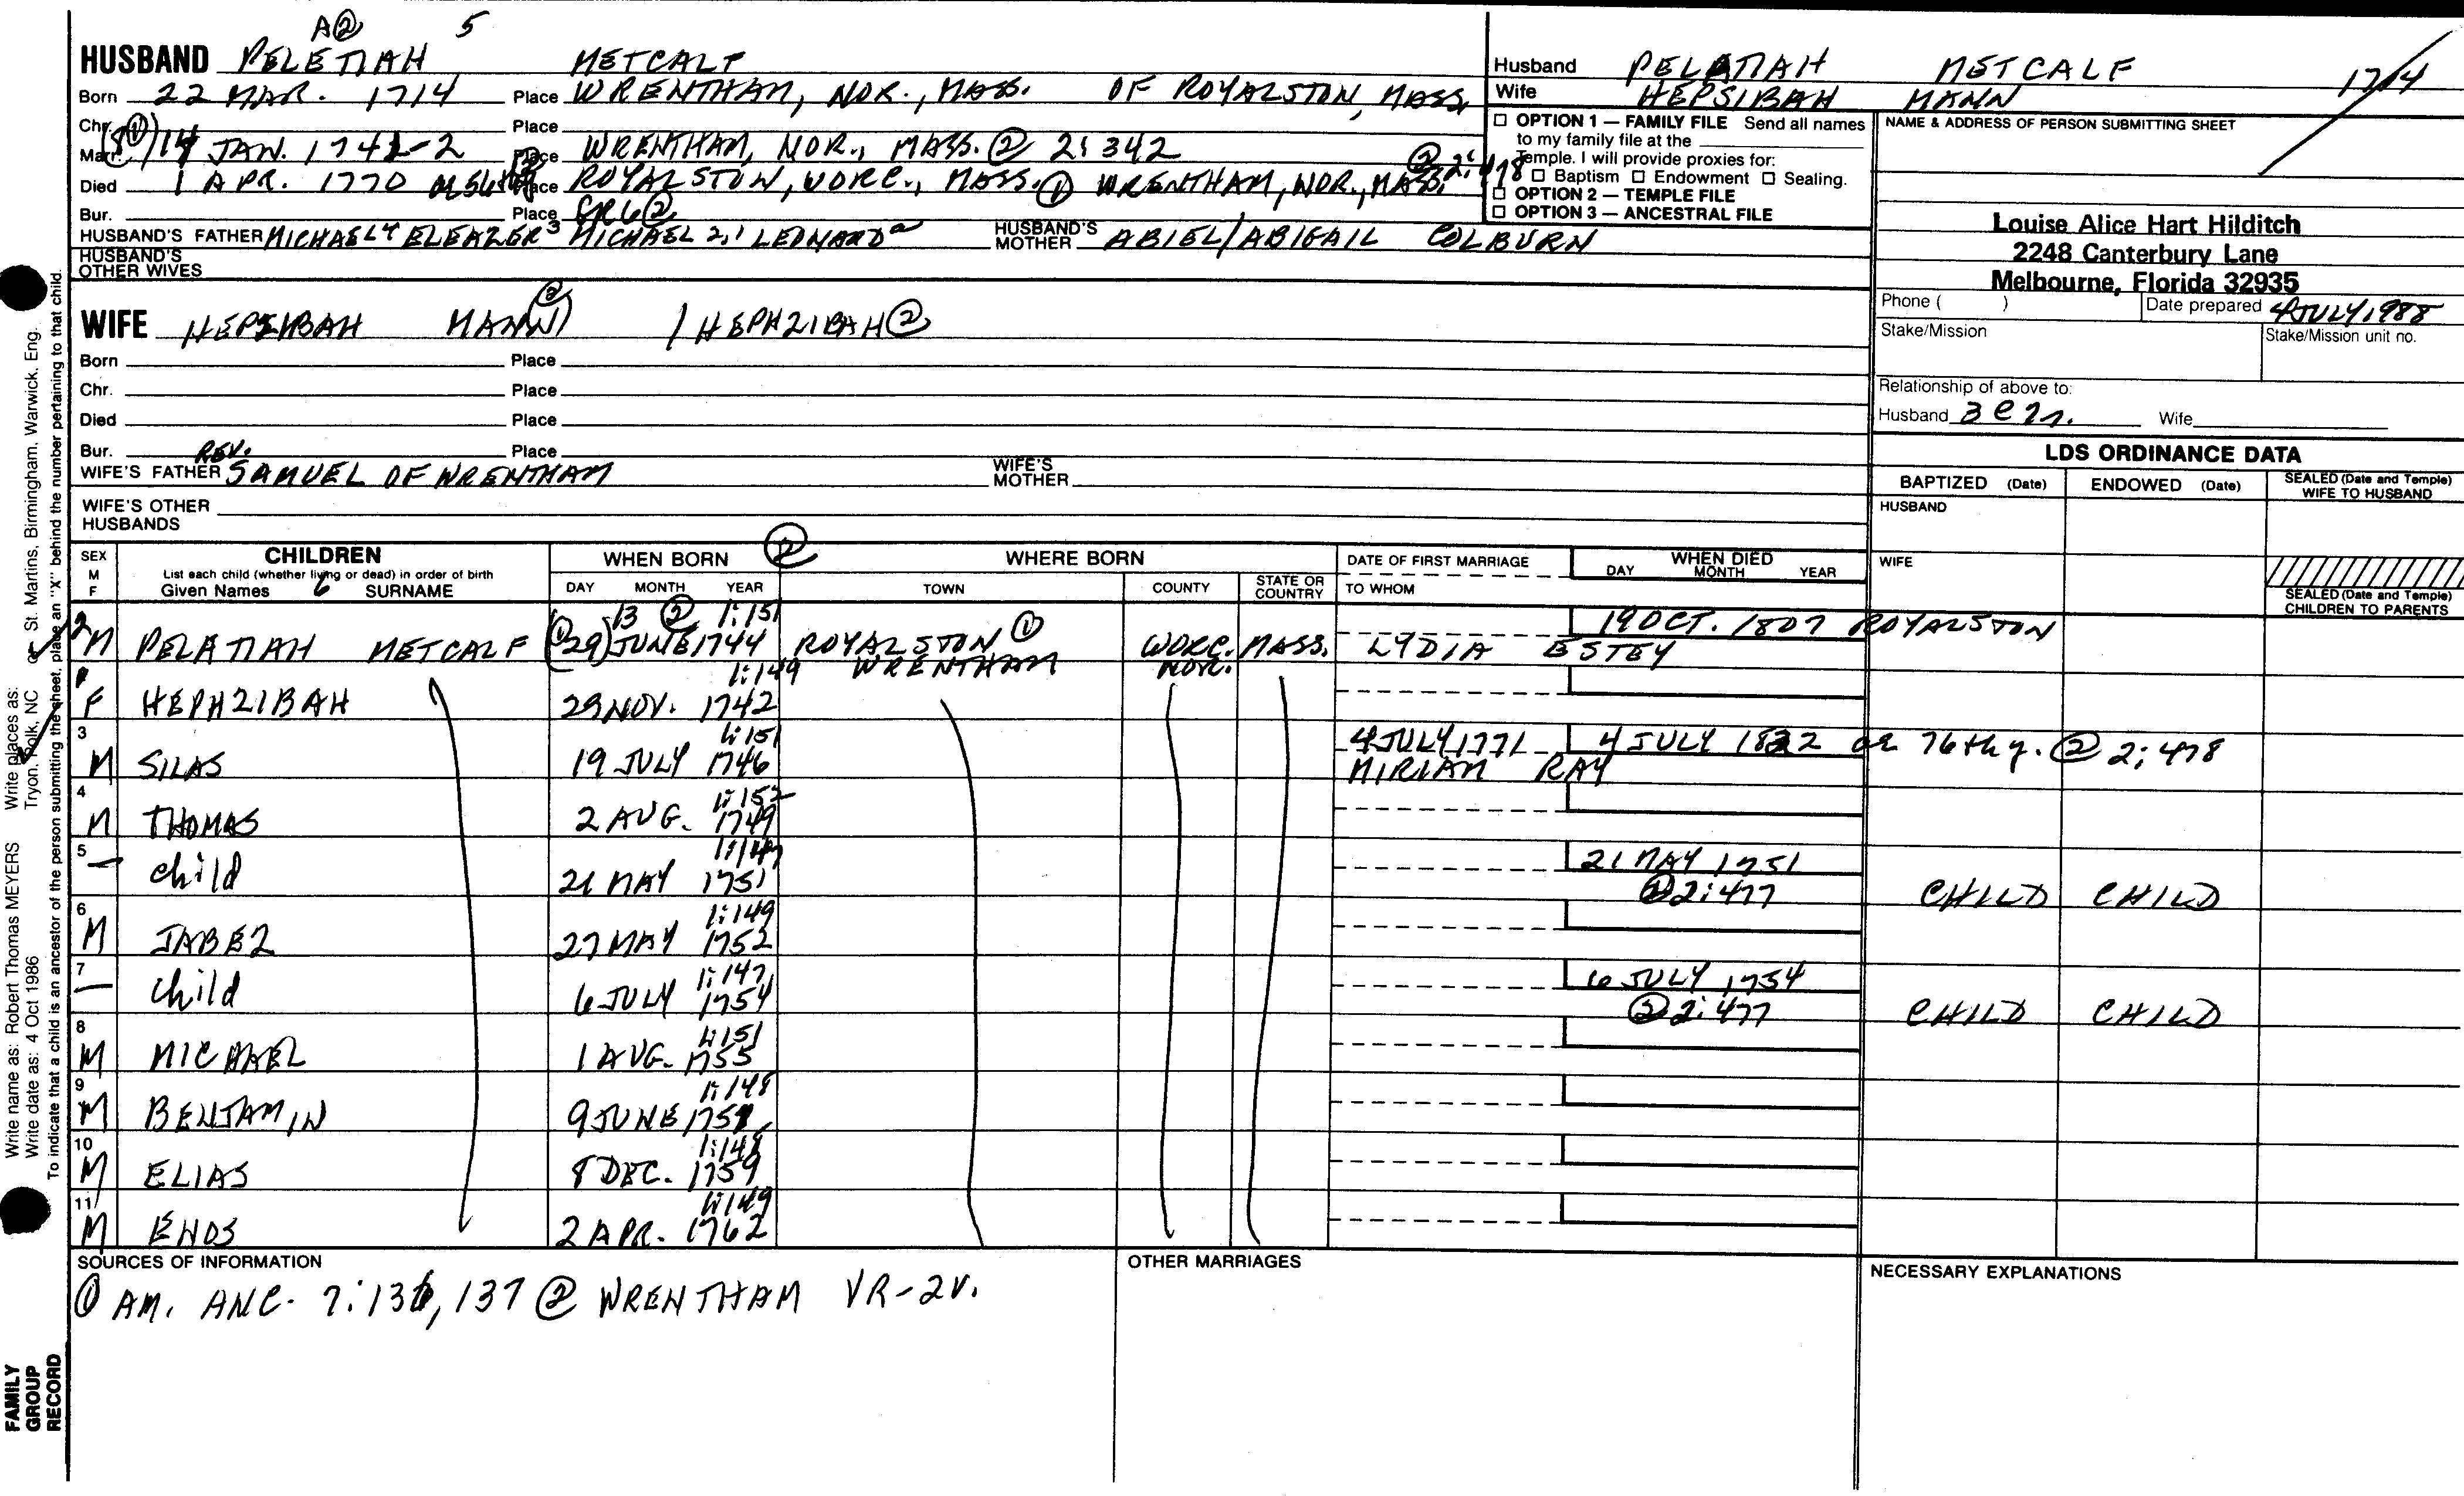 A② 5
HUSBAND PELETIAH METCALF
Born 22 MAR. 1714 Place WRENTHAM, NOR., MASS. OF ROYALSTON, MASS.
Chr. Place
Marr. 14 JAN. 1741-2 Place WRENTHAM, NOR., MASS. ② 2:342
Died 1 APR. 1770 Place ROYALSTON, WORC., MASS. ① WRENTHAM, NOR., MASS. ② 2:478
Bur. Place GR6②
HUSBAND'S FATHER MICHAEL4 ELEAZER3 MICHAEL 2,1 LEONARDa HUSBAND'S MOTHER ABIEL/ABIGAIL COLBURN
HUSBAND'S OTHER WIVES
WIFE HEPSIBAH MAN(N)② / HEPHZIBAH②
Born Place
Chr. Place
Died Place
Bur. Place
WIFE'S FATHER REV. SAMUEL OF WRENTHAM WIFE'S MOTHER
WIFE'S OTHER HUSBANDS
Husband PELATIAH METCALF 1714
Wife HEPSIBAH MANN
☐ OPTION 1 — FAMILY FILE Send all names
to my family file at the
Temple. I will provide proxies for:
☐ Baptism ☐ Endowment ☐ Sealing.
☐ OPTION 2 — TEMPLE FILE
☐ OPTION 3 — ANCESTRAL FILE
NAME & ADDRESS OF PERSON SUBMITTING SHEET
Louise Alice Hart Hilditch
2248 Canterbury Lane
Melbourne, Florida 32935
Phone ( ) Date prepared 4 JULY 1988
Stake/Mission Stake/Mission unit no.
Relationship of above to:
Husband Wife
LDS ORDINANCE DATA
BAPTIZED (Date) ENDOWED (Date) SEALED (Date and Temple) WIFE TO HUSBAND
HUSBAND
WIFE
SEALED (Date and Temple) CHILDREN TO PARENTS
SEX M F CHILDREN WHEN BORN ② WHERE BORN DATE OF FIRST MARRIAGE WHEN DIED
List each child (whether living or dead) in order of birth DAY MONTH YEAR TOWN COUNTY STATE OR COUNTRY TO WHOM DAY MONTH YEAR
Given Names SURNAME
13 ② 1:151 19 OCT. 1807 ROYALSTON
2 M PELATIAH METCALF (①29) JUNE 1744 ROYALSTON ① WORC. MASS. LYDIA ESTEY
1:149 WRENTHAM NOR.
1 F HEPHZIBAH 29 NOV. 1742
3 1:151 4 JULY 1771 4 JULY 1822 ae 76th y. ② 2:478
M SILAS 19 JULY 1746 MIRIAM RAY
4 1:152
M THOMAS 2 AUG. 1749
5 1:147 21 MAY 1751
— child 21 MAY 1751 ②2:477 CHILD CHILD
6 1:149
M JABEZ 27 MAY 1752
7 1:147 6 JULY 1754
— child 6 JULY 1754 ②2:477 CHILD CHILD
8 1:151
M MICHAEL 1 AUG. 1755
9 1:148
M BENJAMIN 9 JUNE
10 1:148
M ELIAS 8 DEC. 1759
11 1:149
M ENOS 2 APR. 1762
SOURCES OF INFORMATION
① AM. ANC. 7:136, 137 ② WRENTHAM VR-2V.
OTHER MARRIAGES
NECESSARY EXPLANATIONS
Write name as: Robert Thomas MEYERS Write places as: St. Martins, Birmingham, Warwick, Eng.
Write date as: 4 Oct 1986 Tryon, Polk, NC or
To indicate that a child is an ancestor of the person submitting the sheet, place an "X" behind the number pertaining to that child.
FAMILY
GROUP
RECORD